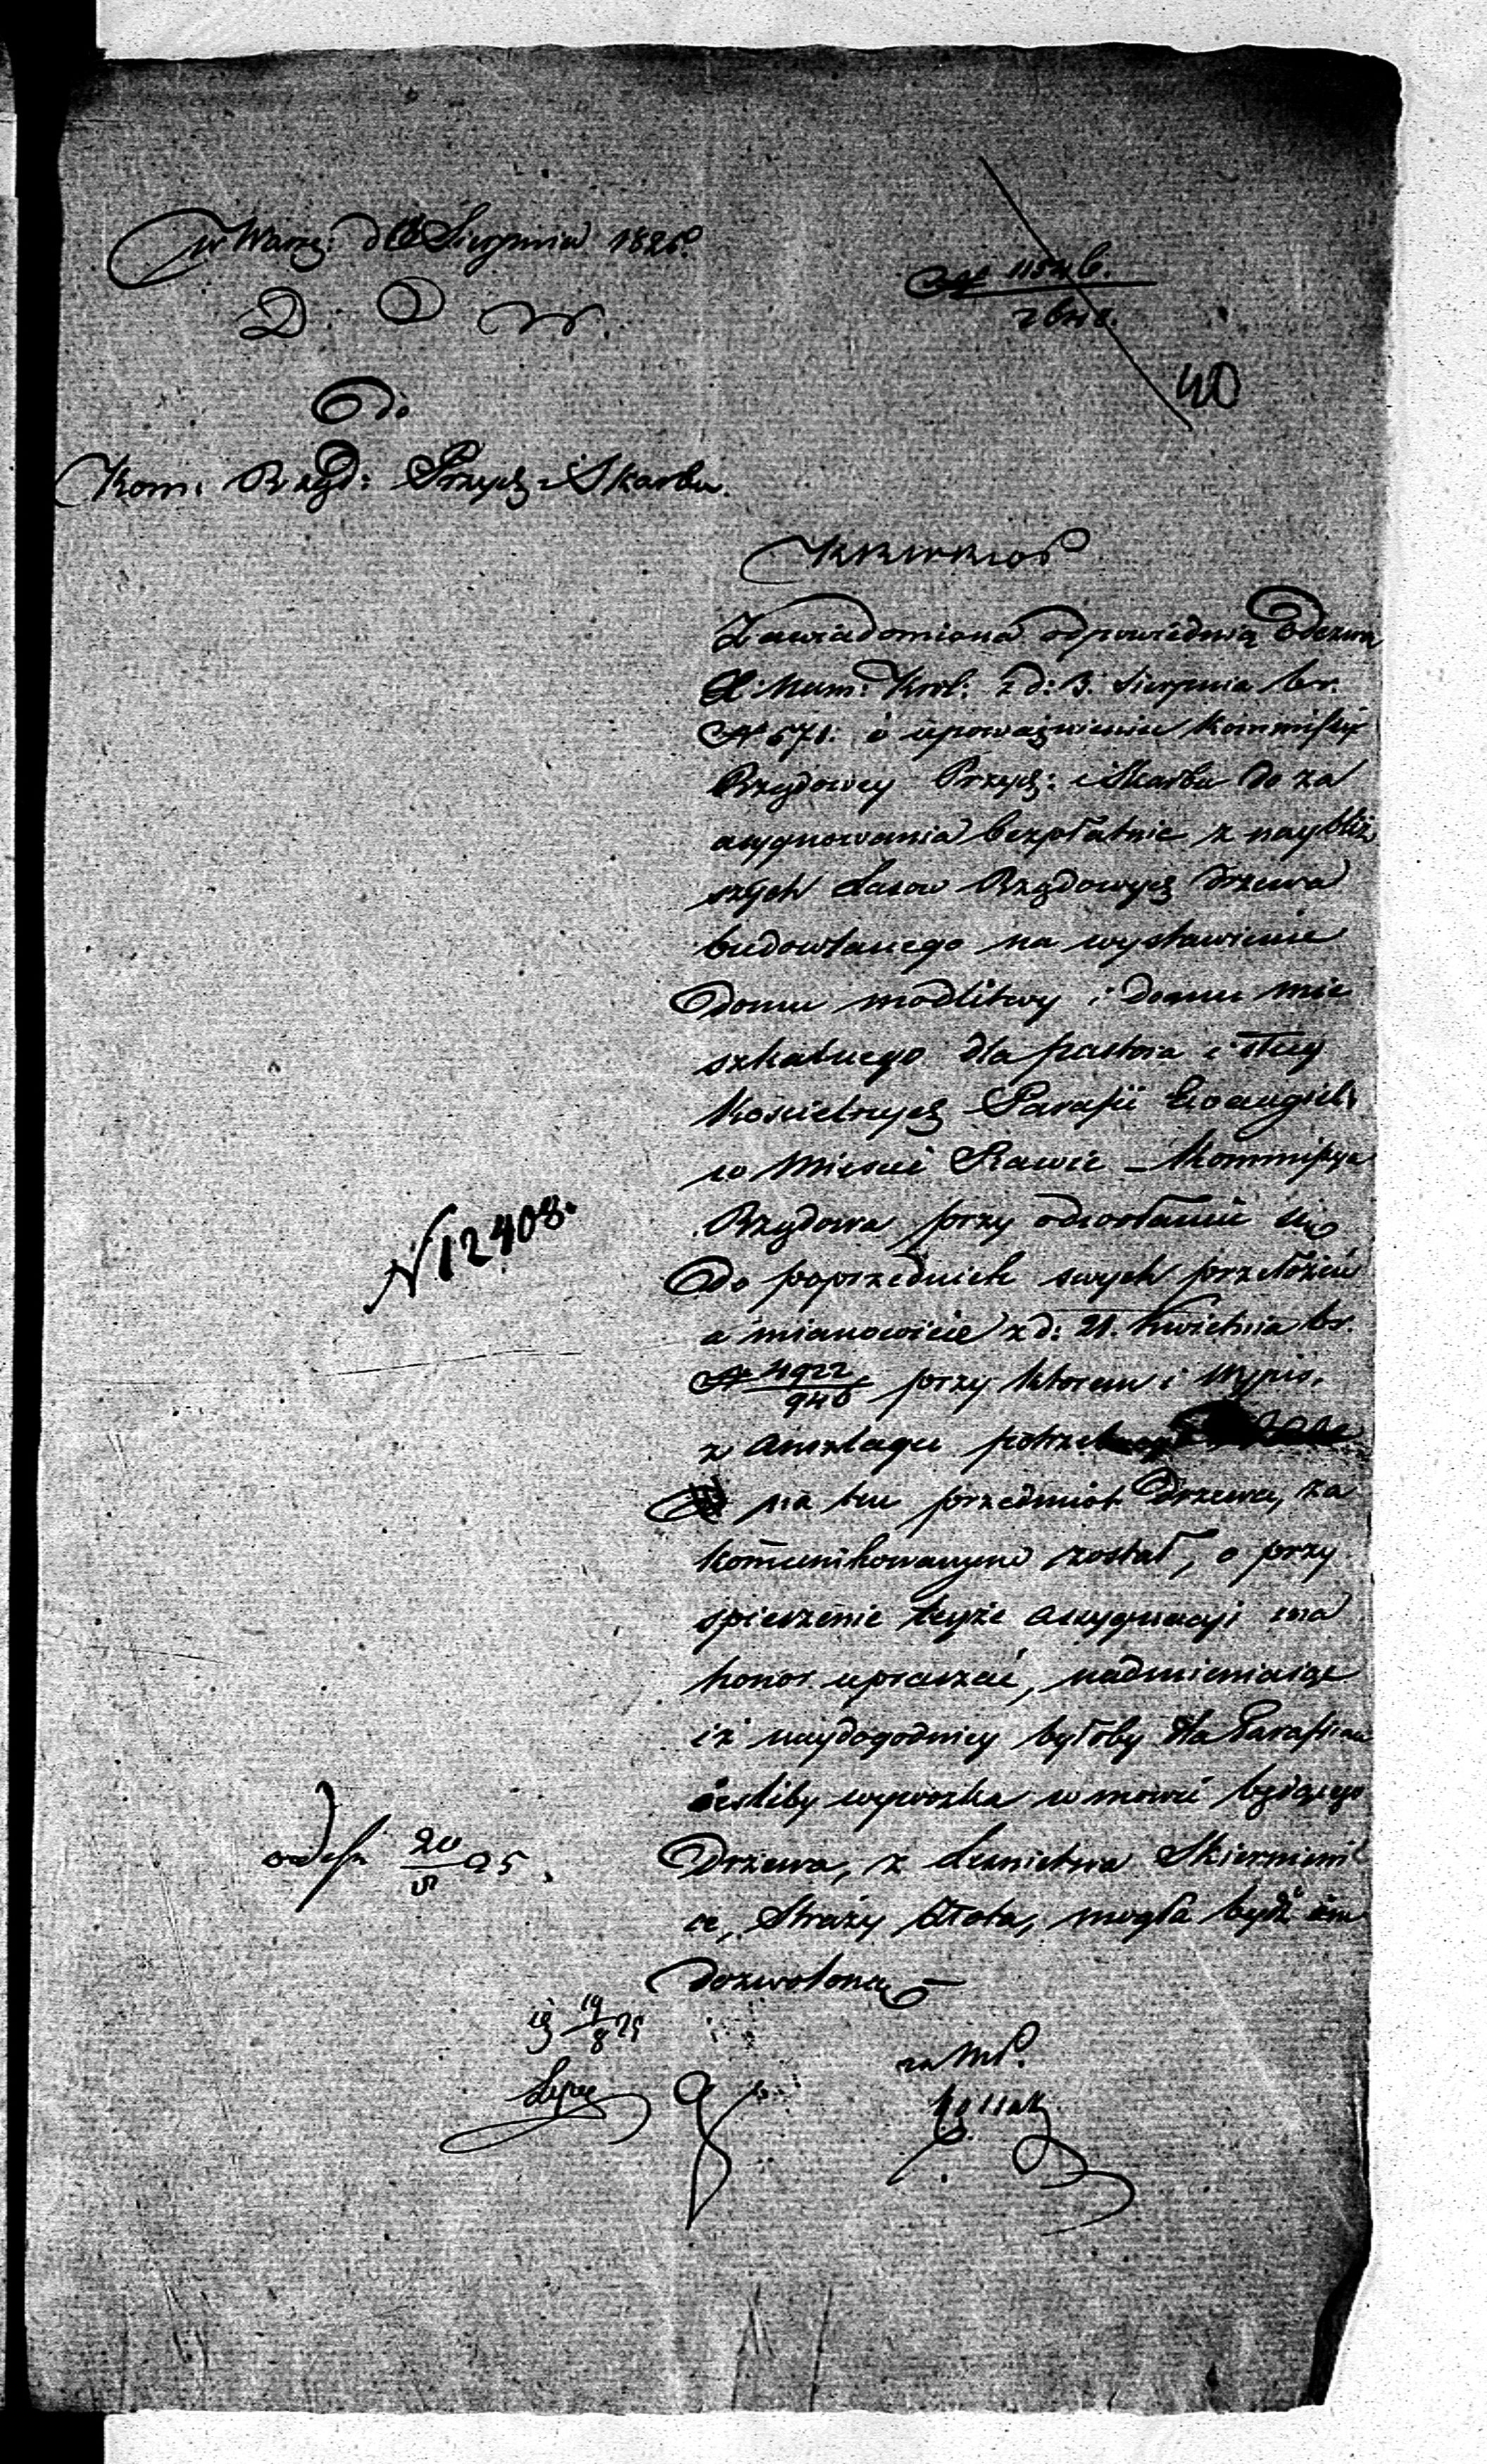 w Warsz: d 18 Sierpnia 1825.
N 11546.
2648.
D. O. W.
40
Do
Kom: Rządz: Przych: i Skarbu.
KRWRiOP
Zawiadomiona odpowiednią Odezwą
X: Nam: Król: z d: 3. Sierpnia br.
N 671. o upoważnieniu Kommissyi
Rządowey Przych: i Skarbu do za
asygnowania bezpłatnie z naybliż
szych Lasow Rządowych drzewa
budowlanego na wystawienie
domu modlitwy i domu mie
szkalnego dla pastora i sług
Kościelnych Parafii Ewangiel:
w Mieście Rawie – Kommissya
Rządowa przy odwołaniu się
N 12408.
do poprzednich swych przełożeń
a mianowicie z d: 21. Kwietnia br.
N 4922/946 przy którem i wypis.
z Anszlagu
na ten przedmiot Drzewa, za
kom̄unikowanym został, o przy
spieszenie teyże assygnacyi ma
honor upraszać, nadmieniaiąc
iż naydogodniey byłoby dla Parafian
iesliby wywozka w mowie będącego
20/8 25.
Drzewa, z Lesnictwa Skierniewi
ce, Straży Złota, mogła bydź im
dozwolona –
19/8 25
za MP.